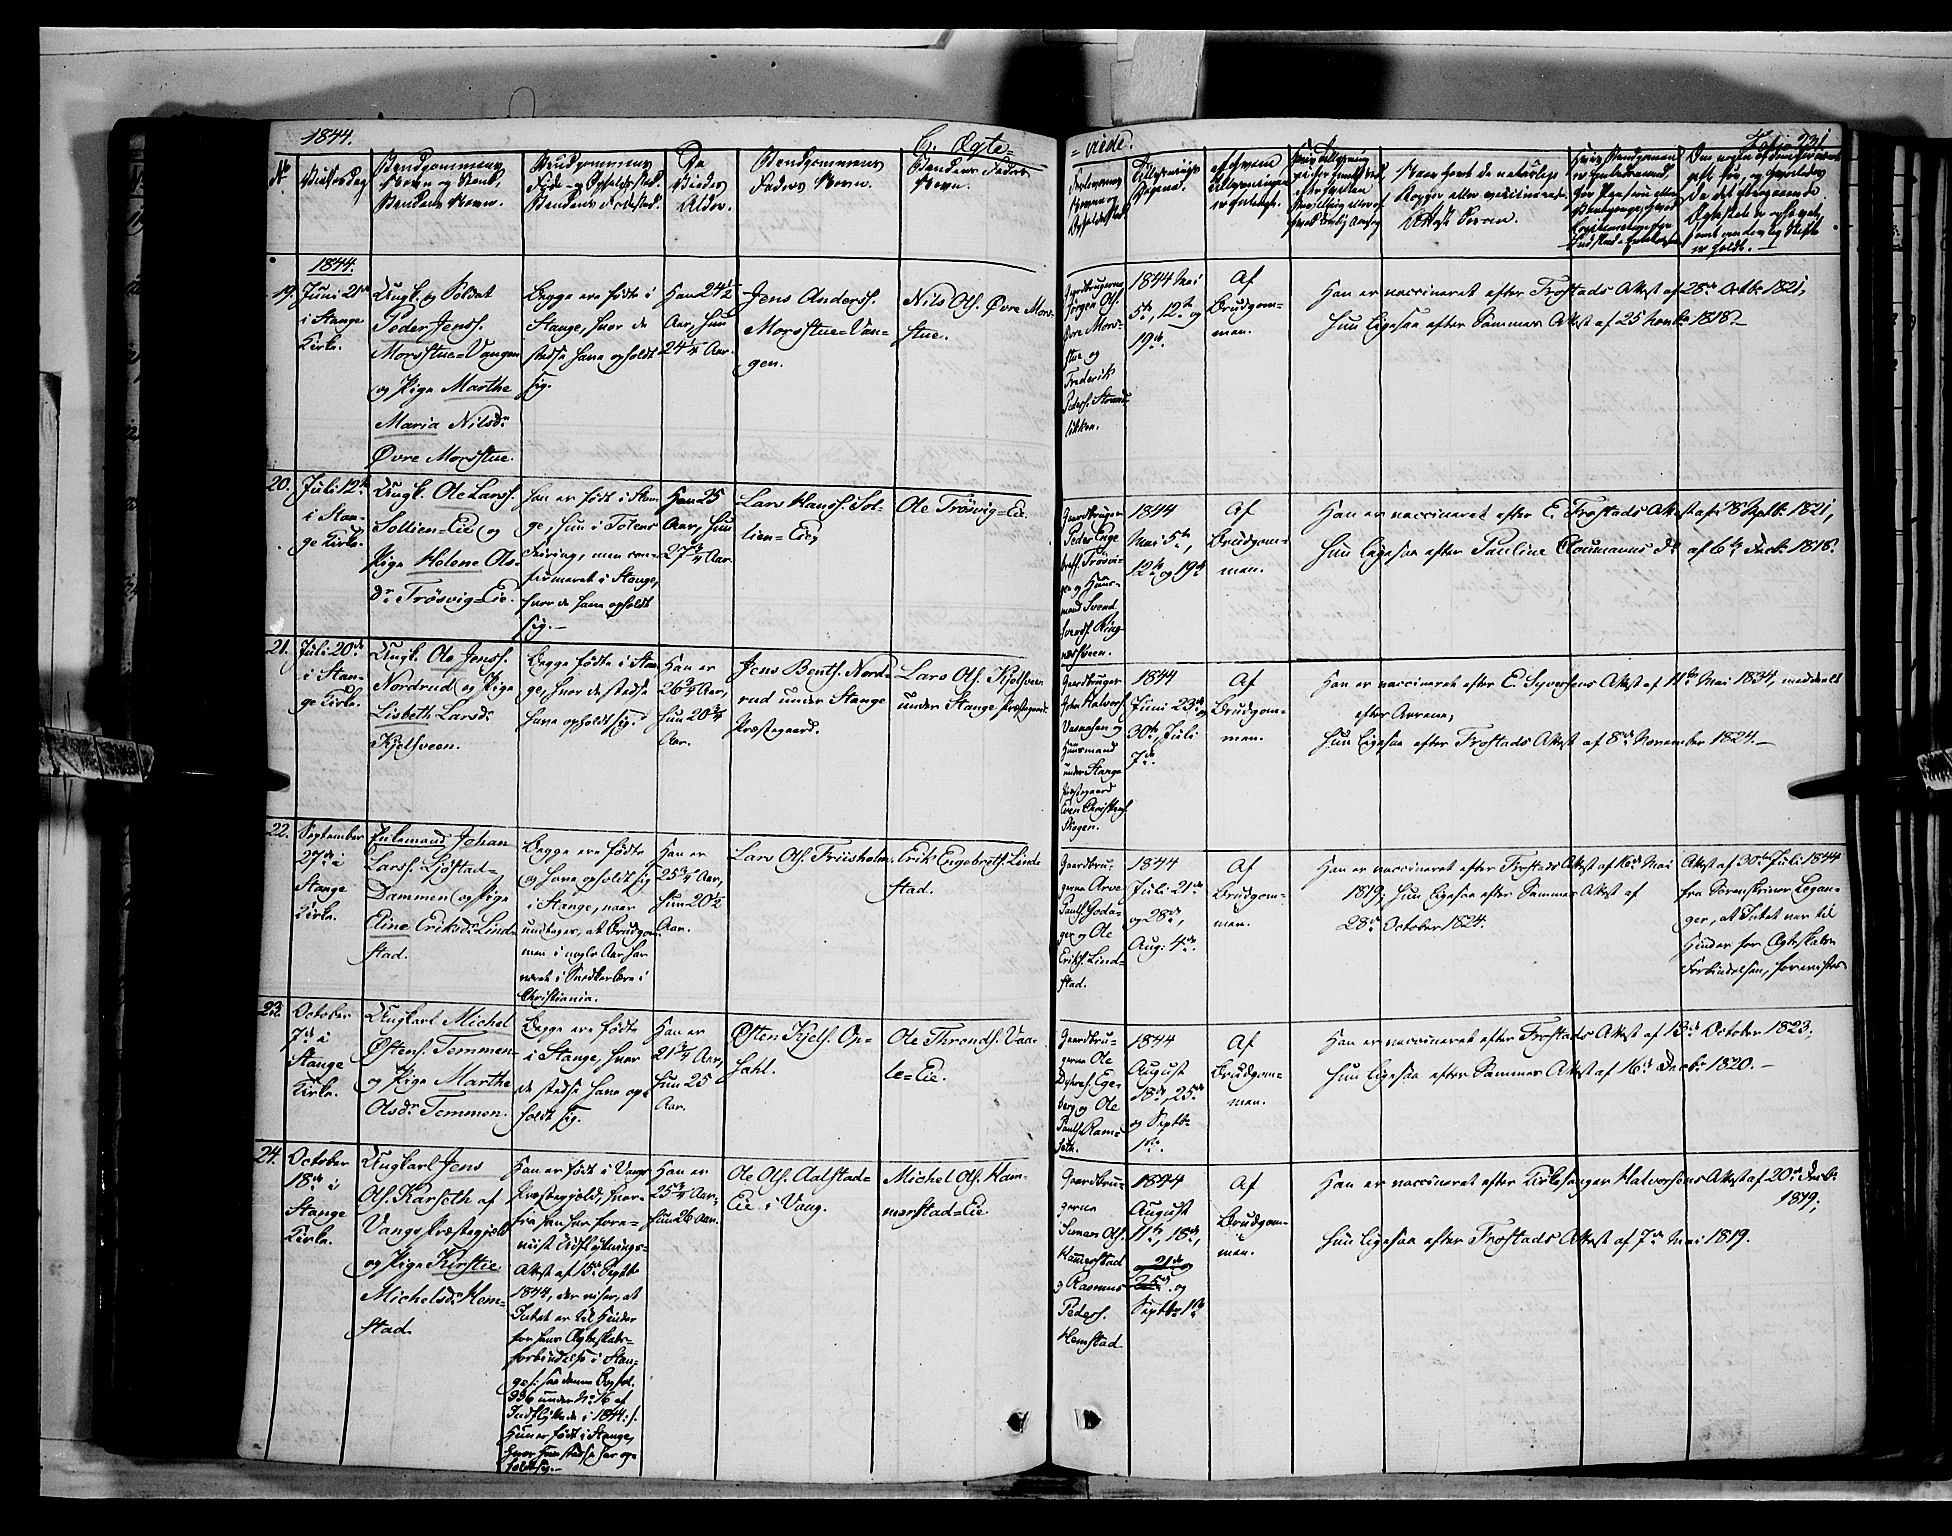 1844.
C. Ægte=
=viede.
Folio 231
No
Vielsesdag
Brudgommens
Navn og Stand,
Brudens Navn.
Brudgommens
Føde- og Opholdssted.
Brudens Fødested.
De
Viedes
Alder.
Brudgommens
Faders Navn.
Brudens Faders
Navn.
Forlovernes
Navne og
Opholdssted
Tillysnings
Dagene.
af hvem
Tillysningen
er forlangt.
Naar havt de naturlige
Kopper eller vaccinerede.
Attest herom.
1844.
19.
Juni 21de
i Stange
Kirke.
Ungk. og Soldat
Peder Jenss.
Morstue=Vangen
og Pige Marthe
Maria Nilsdr
Øvre Morstue.
Begge ere fødte i
Stange, hvor de
stedse have opholdt
sig.
Han 24½
Aar, hun
24¼ Aar.
Jens Anderss.
Morstue=Van=
gen.
Nils Ols. Øvre Mor=
stue.
Gaardbrugerne
Jørgen Ols.
Øvre Mors=
tue og
Frederik
Peders. Strand=
løkken.
1844 Mai
5te, 12te og
19de.
Af
Brudgom=
men.
Han er vaccineret efter Frøstads Attest af 28de Octbr 1821,
Hun Ligesaa efter Sammes Attest af 25 Novbr 1818.
20.
Juli 12te
i Stan=
ge Kirke.
Ungk. Ole Larss.
Sollien=Eie og
Pige Helene Ols=
dr Trøsvig=Eie.
Han er født i Stan=
ge, hun i Totens
men con=
firmeret i Stange,
hvor de have opholdt
sig.
Han 25
Aar, hun
27¾ Aar.
Lars Hanss. Sol=
lien=Eie,
Ole Trøsvig=Eie.
Gaardbruger
Peder Enge
brets. Trøsvi=
gen og Huus=
mand Svend
Svends. Ring=
nesveen.
1844
Mai 5te,
12te og 19de
Af
Brudgom=
men.
Han er vaccineret efter E. Frøstads Attest af 28 Septbr 1821,
Hun Ligesaa efter Pauline Cloumanns Do af 6te Decbr 1818.
21.
Juli 20de
i Stan=
ge Kirke.
Ungk. Ole Jenss.
Nordrud og Pige
Lisbeth Larsdr
Kjelsveen.
Begge fødte i Stan=
ge, hvor de stedse
have opholdt sig.
Han er
26¾ Aar,
hun 20¾
Aar.
Jens Bents. Nord=
rud under Stange
Præstegaard.
Lars Ols. Kjelsveen
under Stange Præstegaard.
Gaardbruger
John Halvors.
Vaaaasen og
Huusmand
under Stange
Præstegaard
Even Christophs.
Skogen.
1844
Juni 23de og
30te, Juli
7de.
Af
Brudgom=
men.
Han er vaccineret efter E. Syversens Attest af 11te Mai 1834, meddeelt
efter Arrene,
Hun Ligesaa efter Frøstads Attest af 8de November 1824.
22.
September
27de i
Stange
Kirke.
Enkemand Johan
Larss. Ljøstad=
Dammen og Pige
Eline Eriksdr Lind=
stad.
Begge ere fødte
og have opholdt sig
i Stange, naar
undtages, at Brudgom=
men i nogle Aar har
været i Snedkerlære i
Christiania.
Han er
25¾ Aar,
hun 20½
Aar.
Lars Ols. Friisholm.
Erik Engebrets. Lind=
stad.
Gaardbru=
gerne Arve
Pauls. Goda=
ger og Ole
Eriks. Lind=
stad.
1844
Juli 21de
og 28de,
Aug: 4de.
Af
Brudgom=
men.
Han er vaccineret efter Frøstads Attest af 16de Mai
1819; Hun Ligesaa efter Sammes Attest af
28de October 1824.
Attest af 30te Juli 1844
fra Sorenskriver Bogan=
ger, at Intet var til
Hinder for Ægteskabs
Forbindelsen, forevistes
23.
October
7de i
Stange
Kirke.
Ungkarl Michel
Østens. Tommen
og Pige Marthe
Olsdr Tommen.
Begge ere fødte
i Stange, hvor
de stedse have op=
holdt sig.
Han er
21¾ Aar,
Hun 25
Aar.
Østen Kjels. Op=
sahl.
Ole Thronds. Vaa=
le=Eie.
Gaardbru=
gerne Ole
Ege=
berg og Ole
Pauls. Ram=
seth.
1844
August
18de, 25de
og Septbr
1ste.
Af
Brudgom=
men.
Han er vaccineret efter Frøstads Attest af 13de October 1823;
Hun Ligesaa efter Sammes Attest af 16de Decbr 1820.
24.
October
18de i
Stange
Kirke.
Ungkarl Jens
Ols. Karseth af
Vangs Præstegjeld
og Pige Kirstie
Michelsdr Hem=
stad.
Han er født i Vangs
Præstegjeld, hvor=
fra han har fore=
viist Udflytnings=
Attest af 15de Septbr
1844, der viser, at
Intet er til Hinder
for hans Ægteskabs=
forbindelse i Stan=
ge /: see denne Bog fol.
396 under No 16 af
Indflyttede i 1844:/.
Hun er født i Stange,
hvor hun stedse har op=
holdt sig.
Han er
25¾ Aar,
hun 26 Aar.
Ole Ols. Aalstad=
Eie i Vang.
Michel Ols. Ham=
merstad=Eie.
Gaardbru=
gerne
Simen Ols.
Hammerstad
og Rasmus
Peders.
Hemstad
1844
August
11te, 18de,
25de og
Septbr 1ste
Af
Brudgom=
men.
Han er vaccineret efter Kirkesanger Halvorsens Attest af 20de Decbr
1819;
Hun Ligesaa efter Frøstads Attest af 7de Mai 1819.